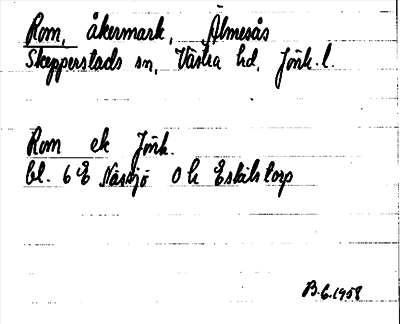 Rom, åkermark, Älmesås
Skepperstads sn, Västra hd, Jönk. l.
Rom ek Jönk.
bl. 6 E Nässjö 0 h Eskilstorp
B.G.1958